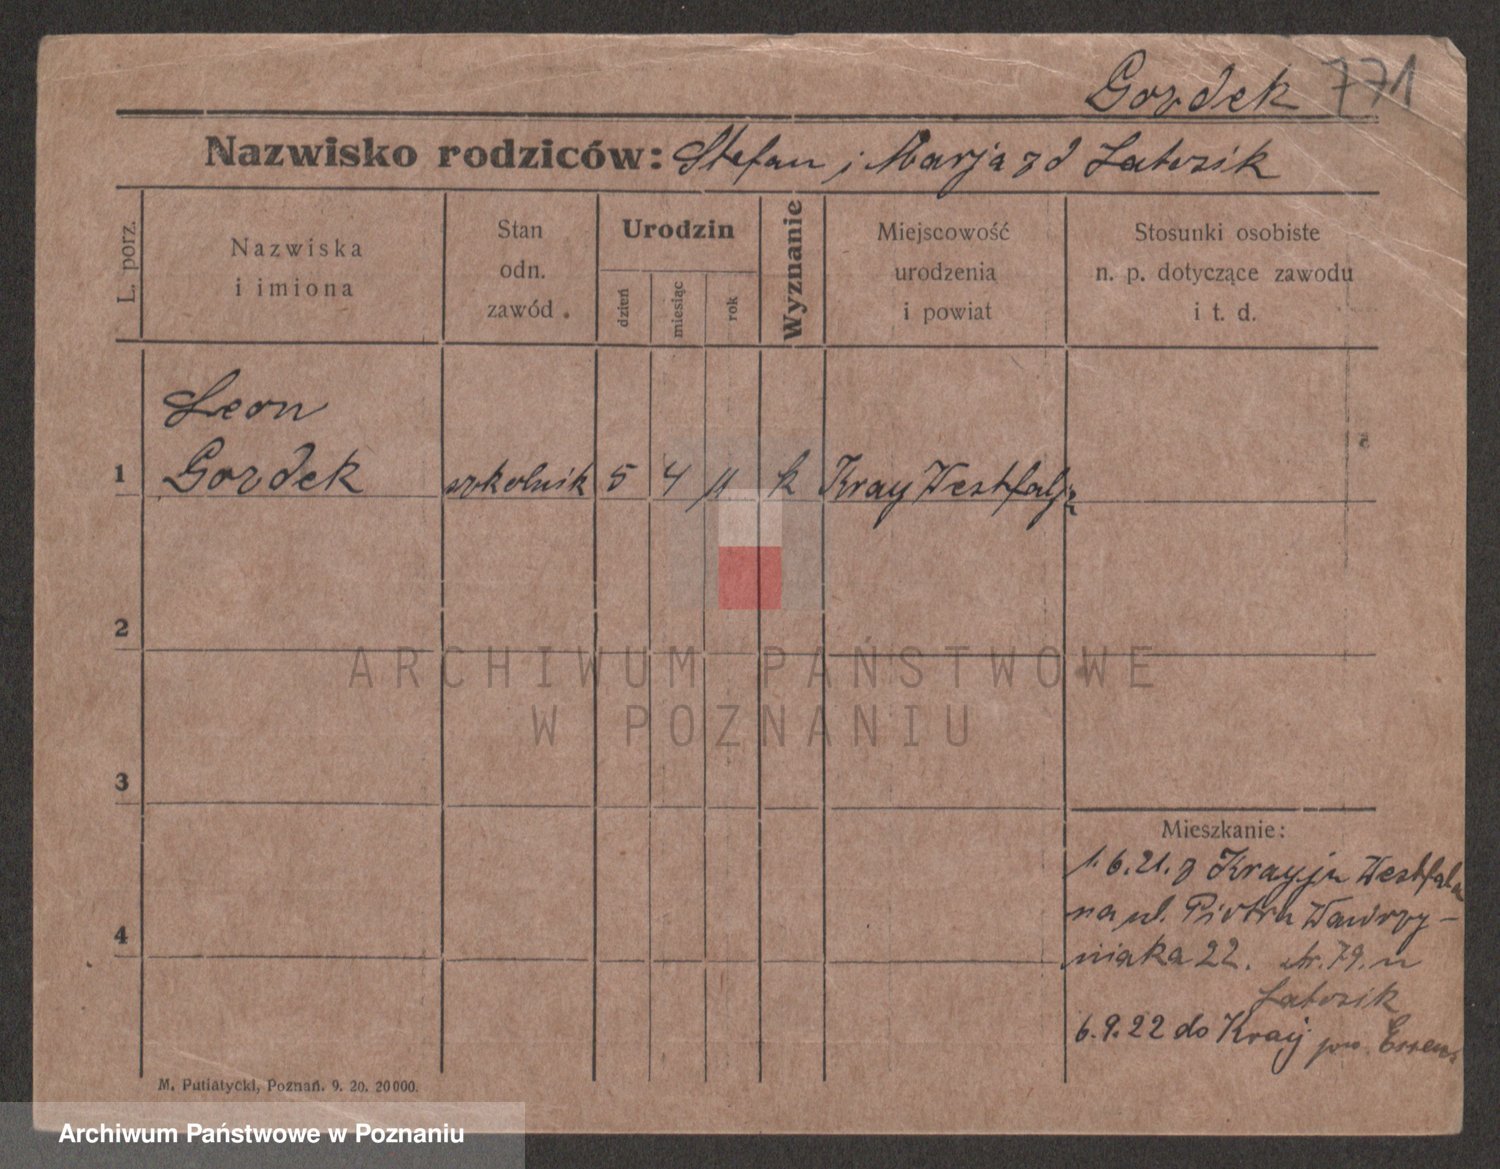 Gozdek 771
Nazwisko rodziców: Stefan i Marja z d Latozik
L. porz.
Nazwiska
i imiona
Stan
odn.
zawód.
Urodzin
dzień
miesiąc
rok
Wyznanie
Miejscowość
urodzenia
i powiat
Stosunki osobiste
n. p. dotyczące zawodu
i t. d.
Leon
1 Gozdek szkolnik 5 4 11 k Kray Westfalja
2
3
4
Mieszkanie:
1.6.21. z Krayju Westfala
na ul. Piotra Wawrzy-
niaka 22. 79. u
Latozik
6.9.22 do Kray pow. Essen
M. Putiatycki, Poznań. 9. 20. 20000.
ARCHIWUM PAŃSTWOWE
W POZNANIU
Archiwum Państwowe w Poznaniu